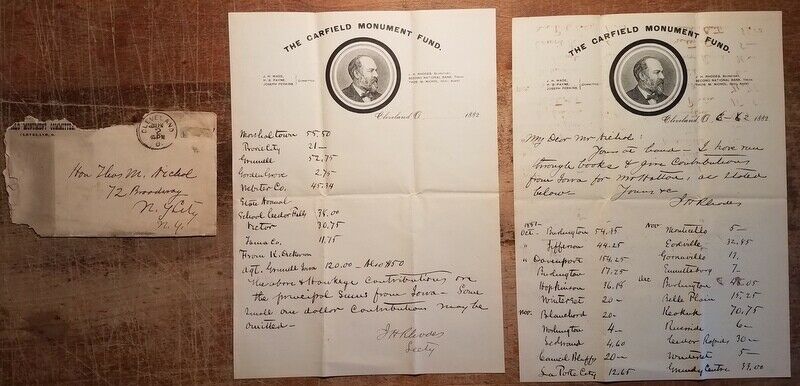 CLEVELAND
O.
MONUMENT COMMITTEE,
CLEVELAND, O.
Hon Thos M. Nichol
72 Broadway
N. Y City
N. Y.
THE GARFIELD MONUMENT FUND.
J. H. WADE,
H. B. PAYNE,
JOSEPH PERKINS
COMMITTEE
J. H. RHODES, Secretary.
SECOND NATIONAL BANK, Treas.
THOS M. NICHOL, Gen'l Agent
Cleveland O. 1882
Marshaltown 55.50
Prairie City 21 —
Grinnell 52.75
2.75
Webster Co. 45.34
State Normal
School Cedar Falls 38.00
Victor 30.75
Tama Co. 11.75
From K. Dickerson
agt. Grinnell Iowa 120.00 – Also 850
The above & Hawkeye Contributions are
the principal Sums from Iowa — Some
small one dollar Contributions may be
omitted —
J H Rhodes
Secty
THE GARFIELD MONUMENT FUND.
J. H. WADE,
H. B. PAYNE,
JOSEPH PERKINS
COMMITTEE
J. H. RHODES, Secretary.
SECOND NATIONAL BANK, Treas.
THOS M. NICHOL, Gen'l Agent
Cleveland O. 6 - 2 1882
My Dear Mr Nichol:
Yours at hand — I have run
through books & give Contributions
from Iowa for Mr Hatton, as stated
below Yours &c
J H Rhodes
1881
Oct – Burlington 54.85
" Jefferson 44.25
" Davenport 154.25
Burlington 17.25
Hopkinson 36.18
Winterset 20 —
Nov. Blanchard 20 —
4 —
4.60
Council Bluffs 20 —
La Porte City 12.65
Nov Monticello 5 —
Eddyville 32.85
17.
Emmetsburg 7 —
Dec Burlington 48.05
Belle Plain 15.25
Keokuk 70.75
Riverside 6 —
Cedar Rapids 30 —
Winterset 5 —
Grundy Centre 33.00